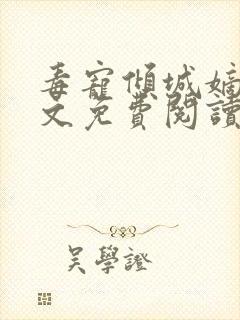 毒寵傾城嫡
文免費閱讀
吳學證